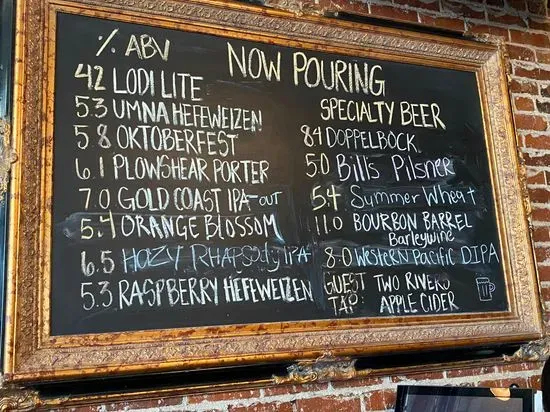 % ABV
NOW POURING
42 LODI LITE
5.3 UMNA HEFEWEIZEN
5.8 OKTOBERFEST
6.1 PLOWSHEAR PORTER
7.0 GOLD COAST IPA-OUT
5.4 ORANGE BLOSSOM
6.5 HAZY RHAPSODY IPA
5.3 RASPBERRY HEFEWEIZEN
SPECIALTY BEER
84 DOPPELBOCK
5.0 Bills Pilsner
5.4 Summer Wheat
11.0 BOURBON BARREL
Barleywine
8.0 Western Pacific DIPA
GUEST TAP: TWO RIVERS
APPLE CIDER